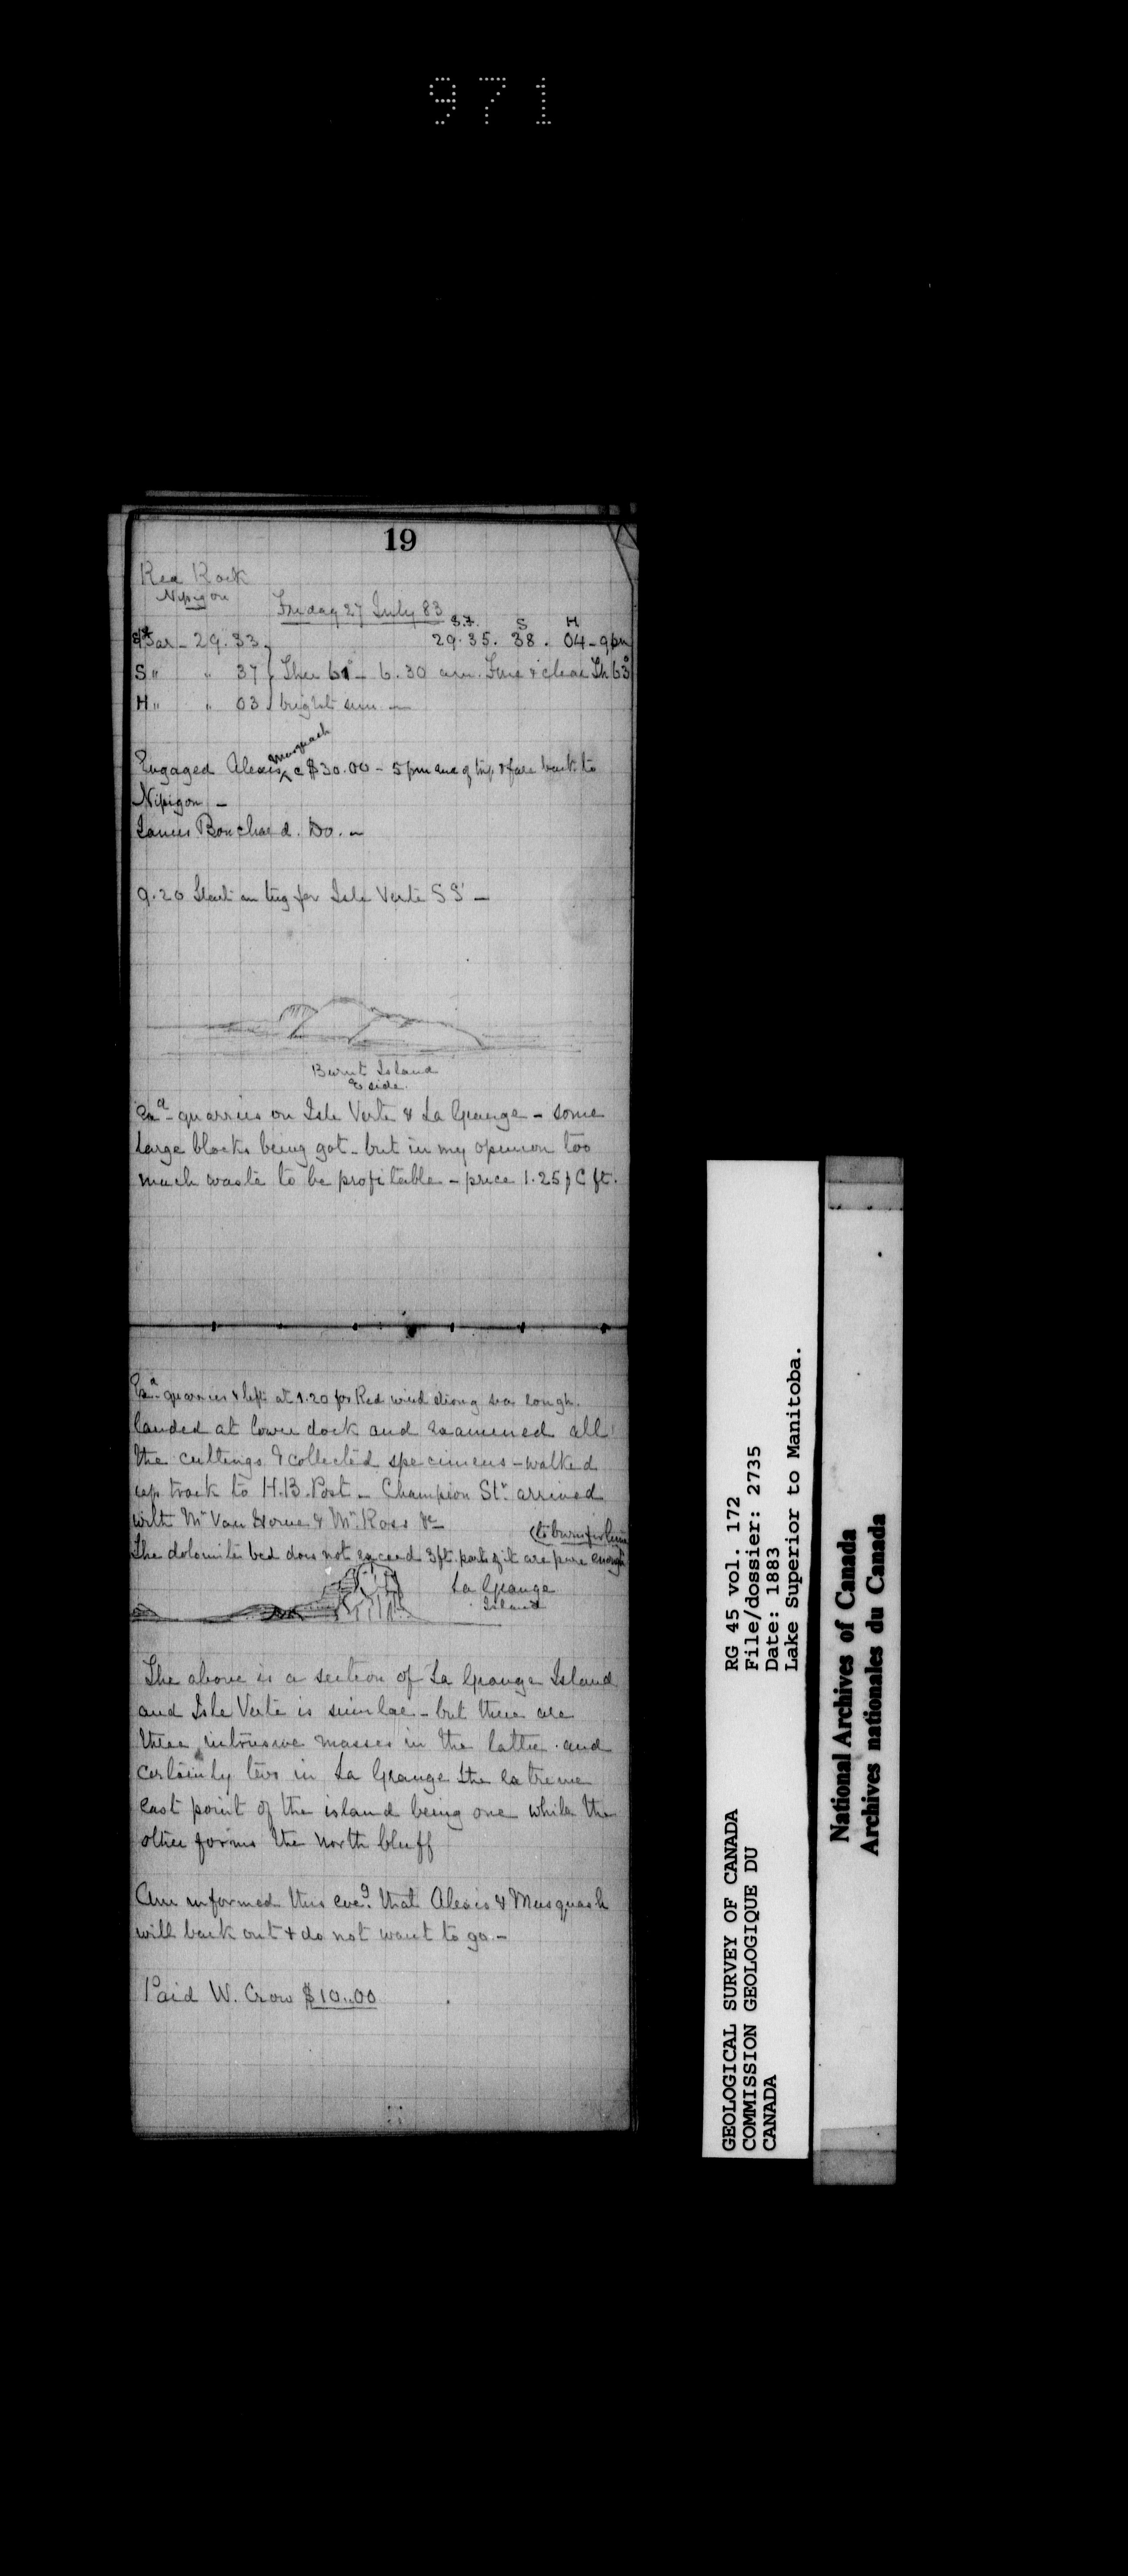 971
19
Red Rock
Nipigon
Friday 27 July 83
S.J. S H
Bar - 29.33 29.35. 38. 04 - 9 pm
S " " 37 Ther 61° - 6.30 am. Fine & clear Th 63°
H " " 03 bright sun -
Musquash
Engaged Alexis @ $30.00 - 5 pm end of trip & fare back to
Nipigon -
James Bouchard. Do. -
9.20 Start on tug for Isle Verte SS' -
Burnt Island
E side.
Exd quarries on Isle Verte & La Grange - some
large blocks being got - but in my opinion too
much waste to be profitable - price 1.25 p C ft.
Exd quarries & left at 1.20 for Red wind strong sea rough.
landed at lower dock and examined all
the cuttings & collected specimens - walked
up track to H.B. Post - Champion Str arrived
with Mr Van Horne & Mr Ross &c
(to burn for lime
The dolomite bed does not exceed 3 ft. parts of it are pure enough
La Grange
Island
The above is a section of La Grange Island
and Isle Verte is similar - but there are
three intrusive masses in the latter. and
certainly two in La Grange the extreme
east point of the island being one while the
other forms the north bluff
Am informed this eveg. that Alexis & Musquash
will back out & do not want to go. -
Paid W. Crow $10.00
GEOLOGICAL SURVEY OF CANADA
COMMISSION GEOLOGIQUE DU
CANADA
RG 45 vol. 172
File/dossier: 2735
Date: 1883
Lake Superior to Manitoba.
National Archives of Canada
Archives nationales du Canada